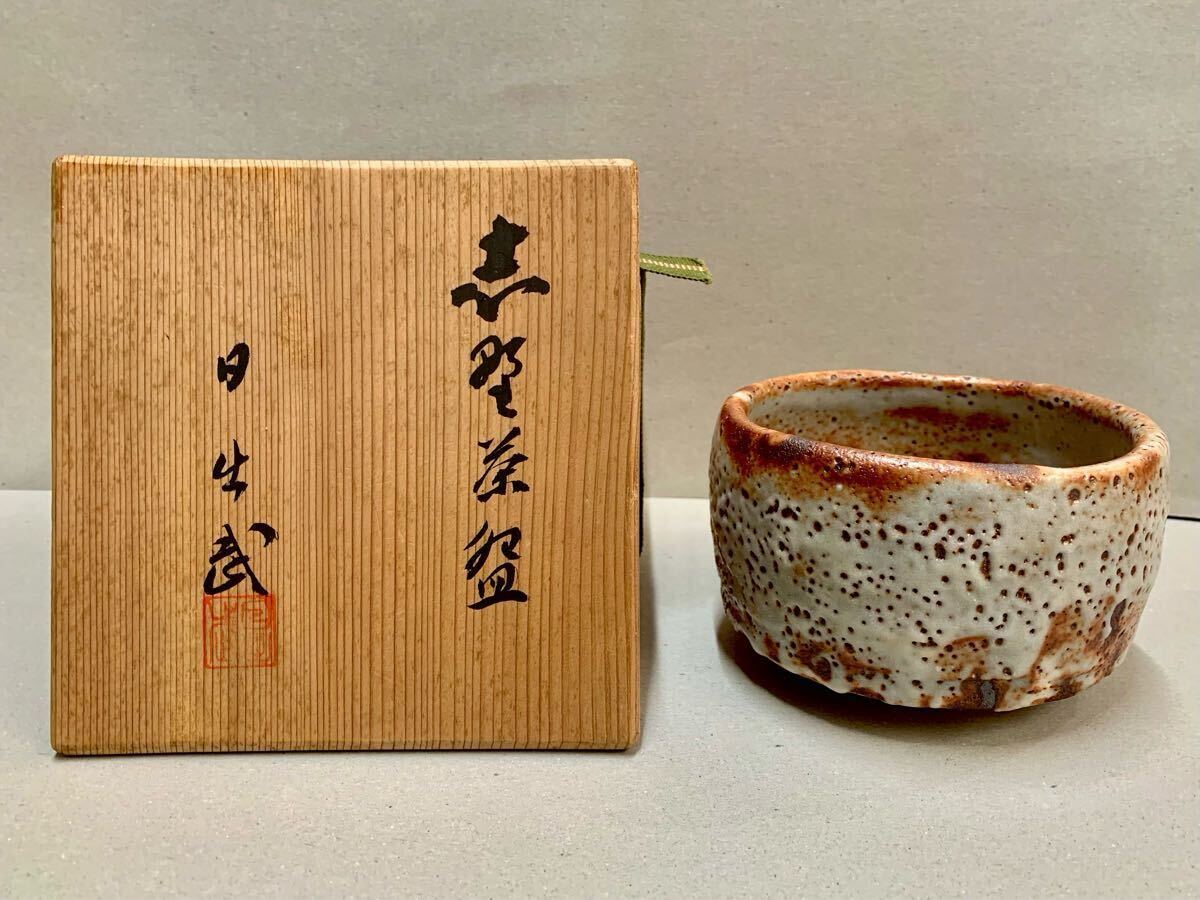 志野茶盌
日出武